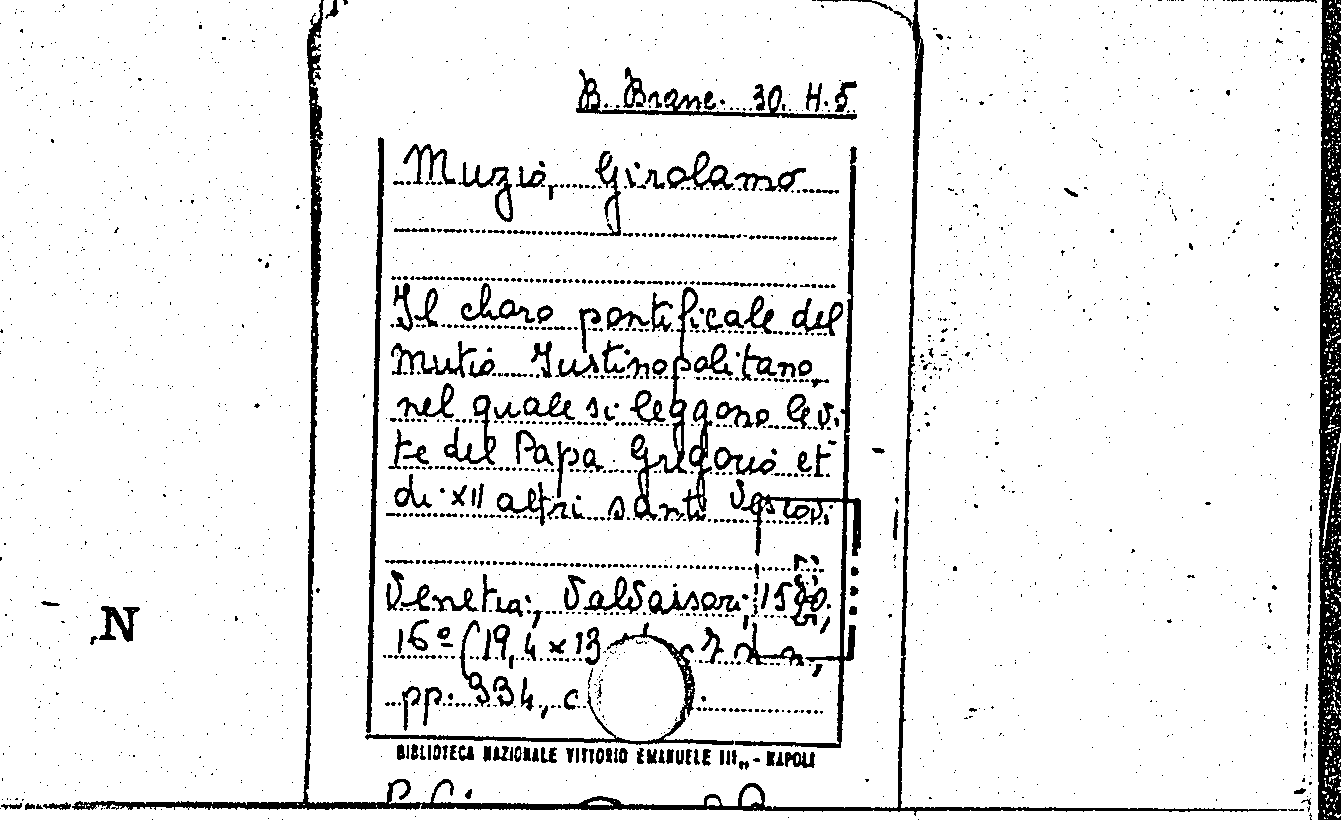 B. Branc. 30. H. 5
Muzio, Girolamo
Il choro pontificale del
Mutio Iustinopolitano,
nel quale si leggono le vi-
te del Papa Gregorio et
di XII altri santi Vescovi
Venetia, Valvassori,
16º (19,4 x 13
pp. 334, c
N
BIBLIOTECA NAZIONALE VITTORIO EMANUELE III„ - NAPOLI